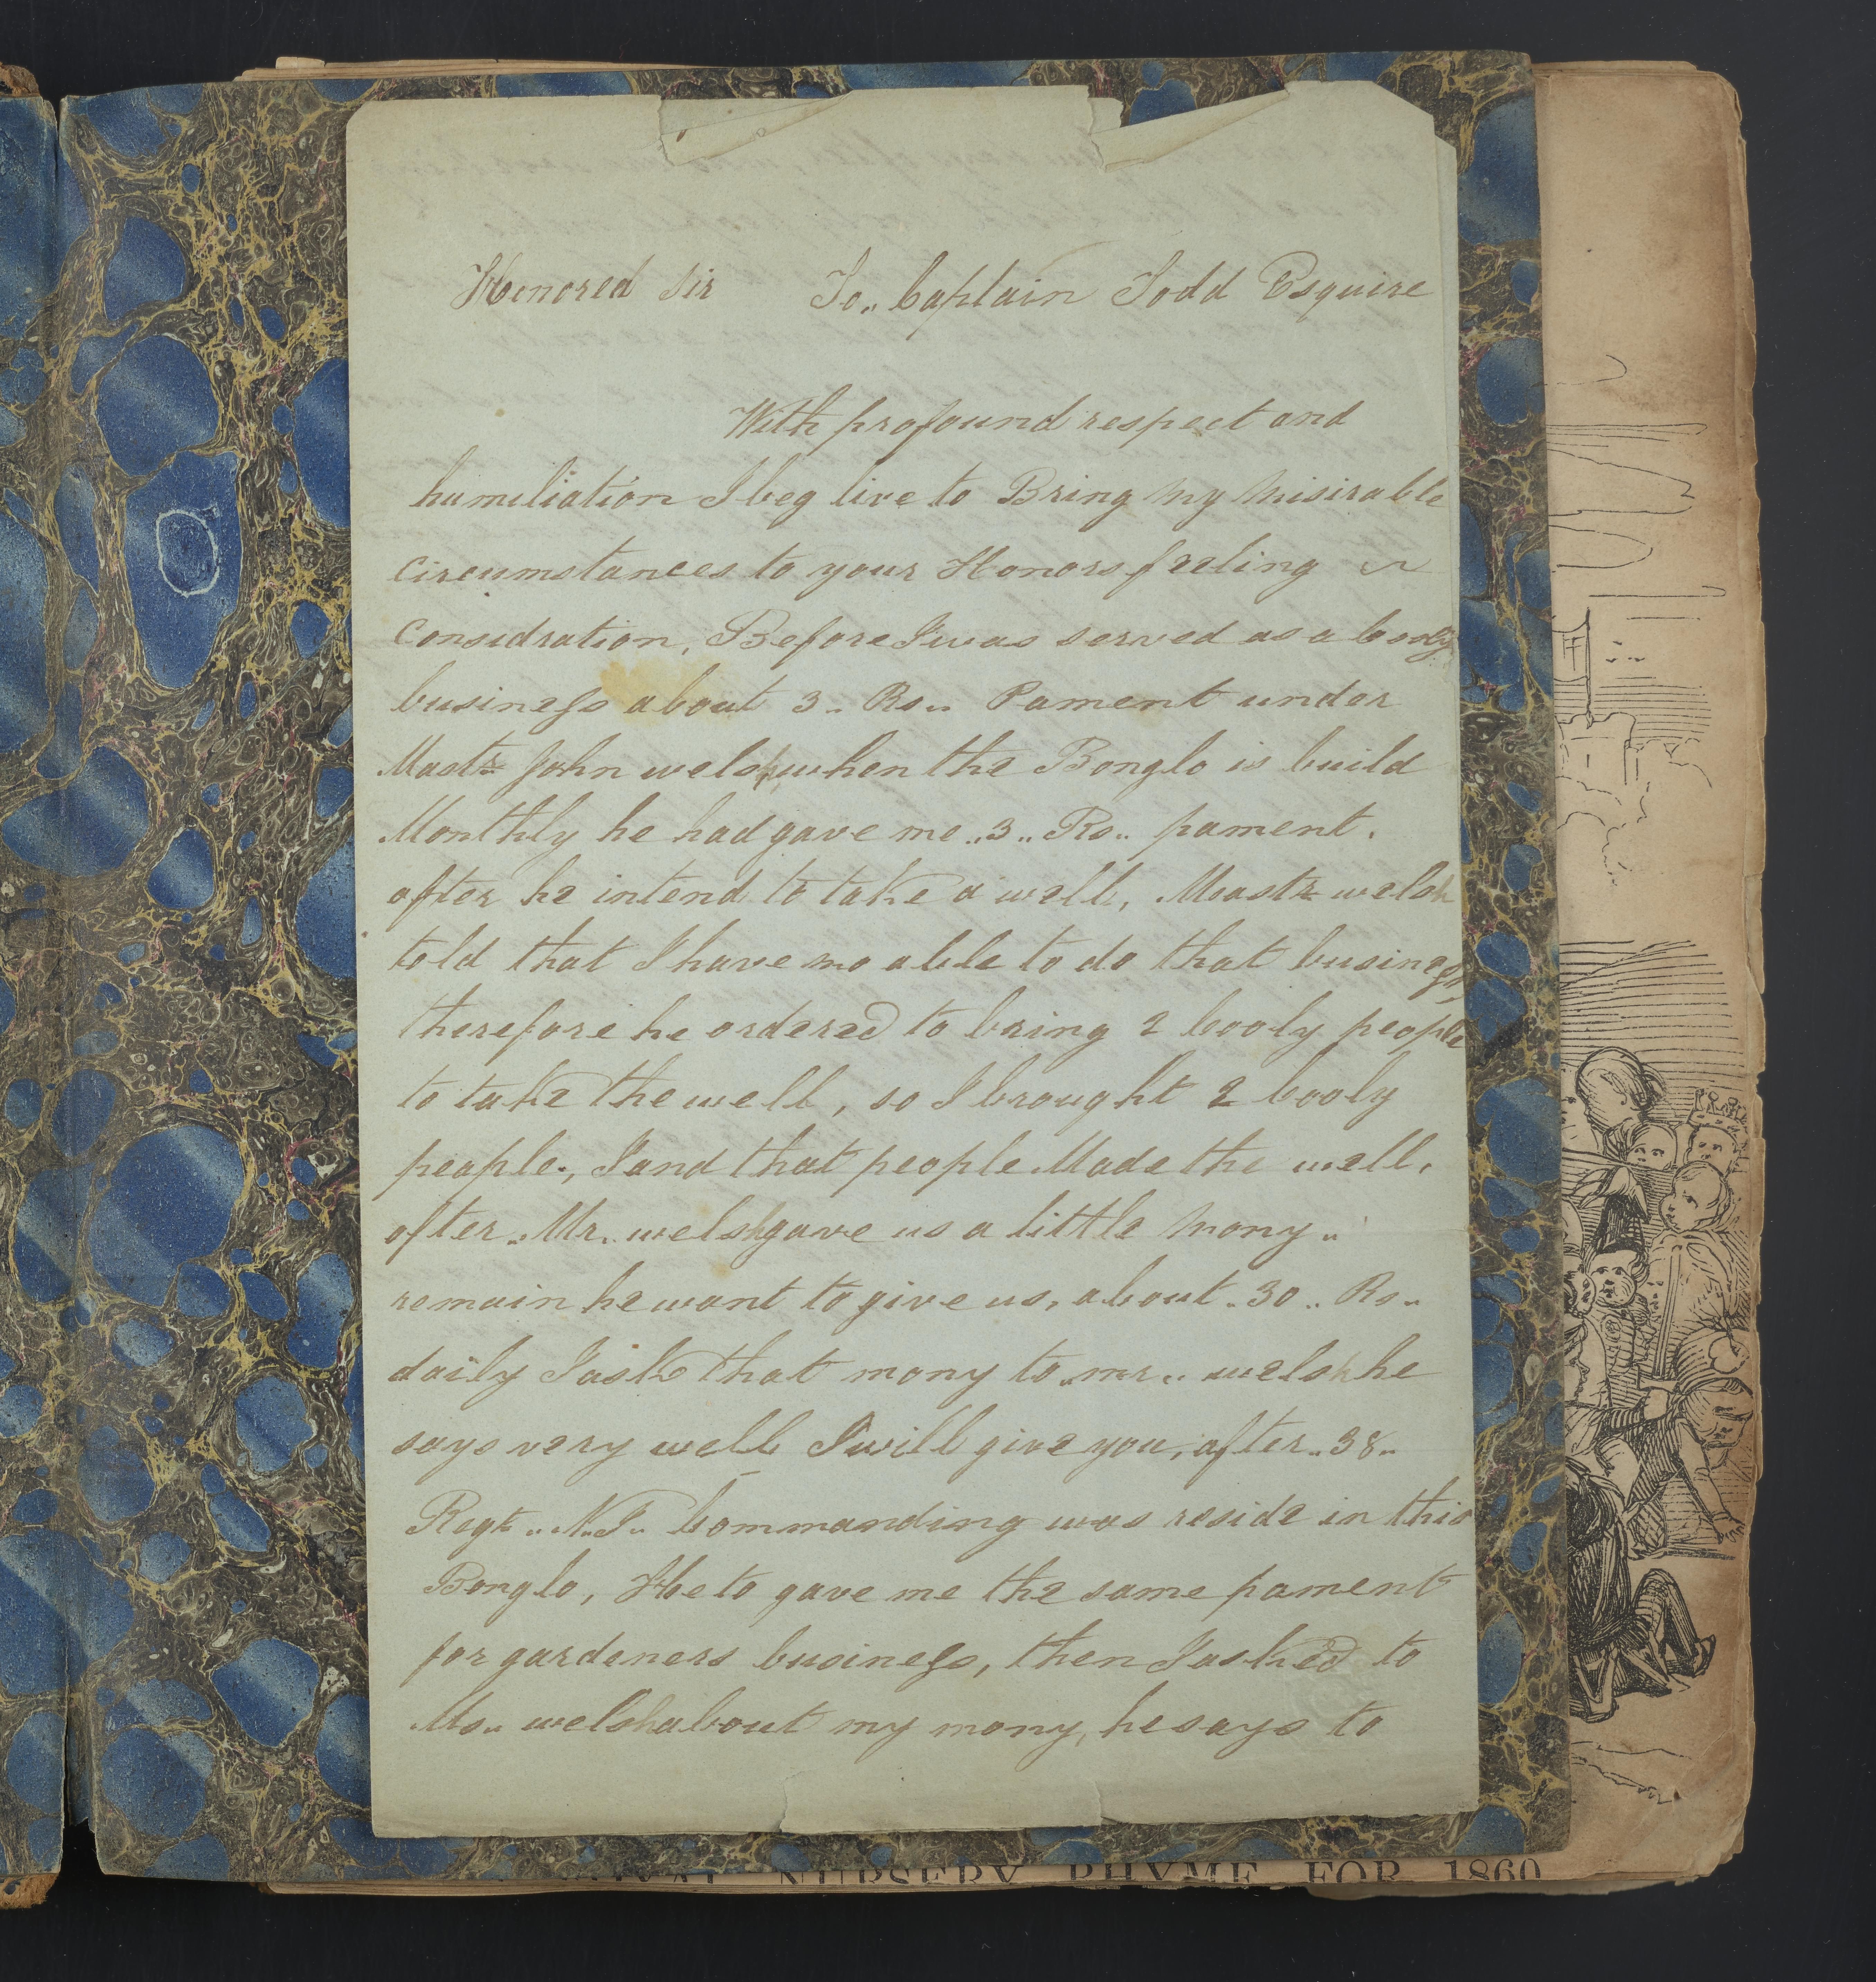 Honored Sir To,, Captain Todd Esquire
With profound respect and
humiliation I beg live to Bring my misirable
circumstances to your Honors feeling &
considration, Before I was served as a booly
business about 3 ,, Rs ,, Pament under
Mastr John welsh when the Bonglo is build
Monthly he had gave me ,, 3 ,, Rs ,, pament.
after he intend to take a well, Mastr welsh
told that I have no able to do that business,
therefore he ordered to bring 2 booly people
to take the well, so I brought 2 booly
people., I and that people Made the well,
after ,, Mr. welsh gave us a little mony ,,
remain he want to give us, about ,, 30 ,, Rs ,,
daily I ask that mony to ,, mr ,, welsh he
says very well I will give you, after ,, 38 ,,
Regt ,, N. I ,, Commanding was reside in this
Bonglo, He to gave me the same pament
for gardeners business, then I asked to
Ms ,, welsh about my mony, he says to
NURSERY RHYME FOR 1860